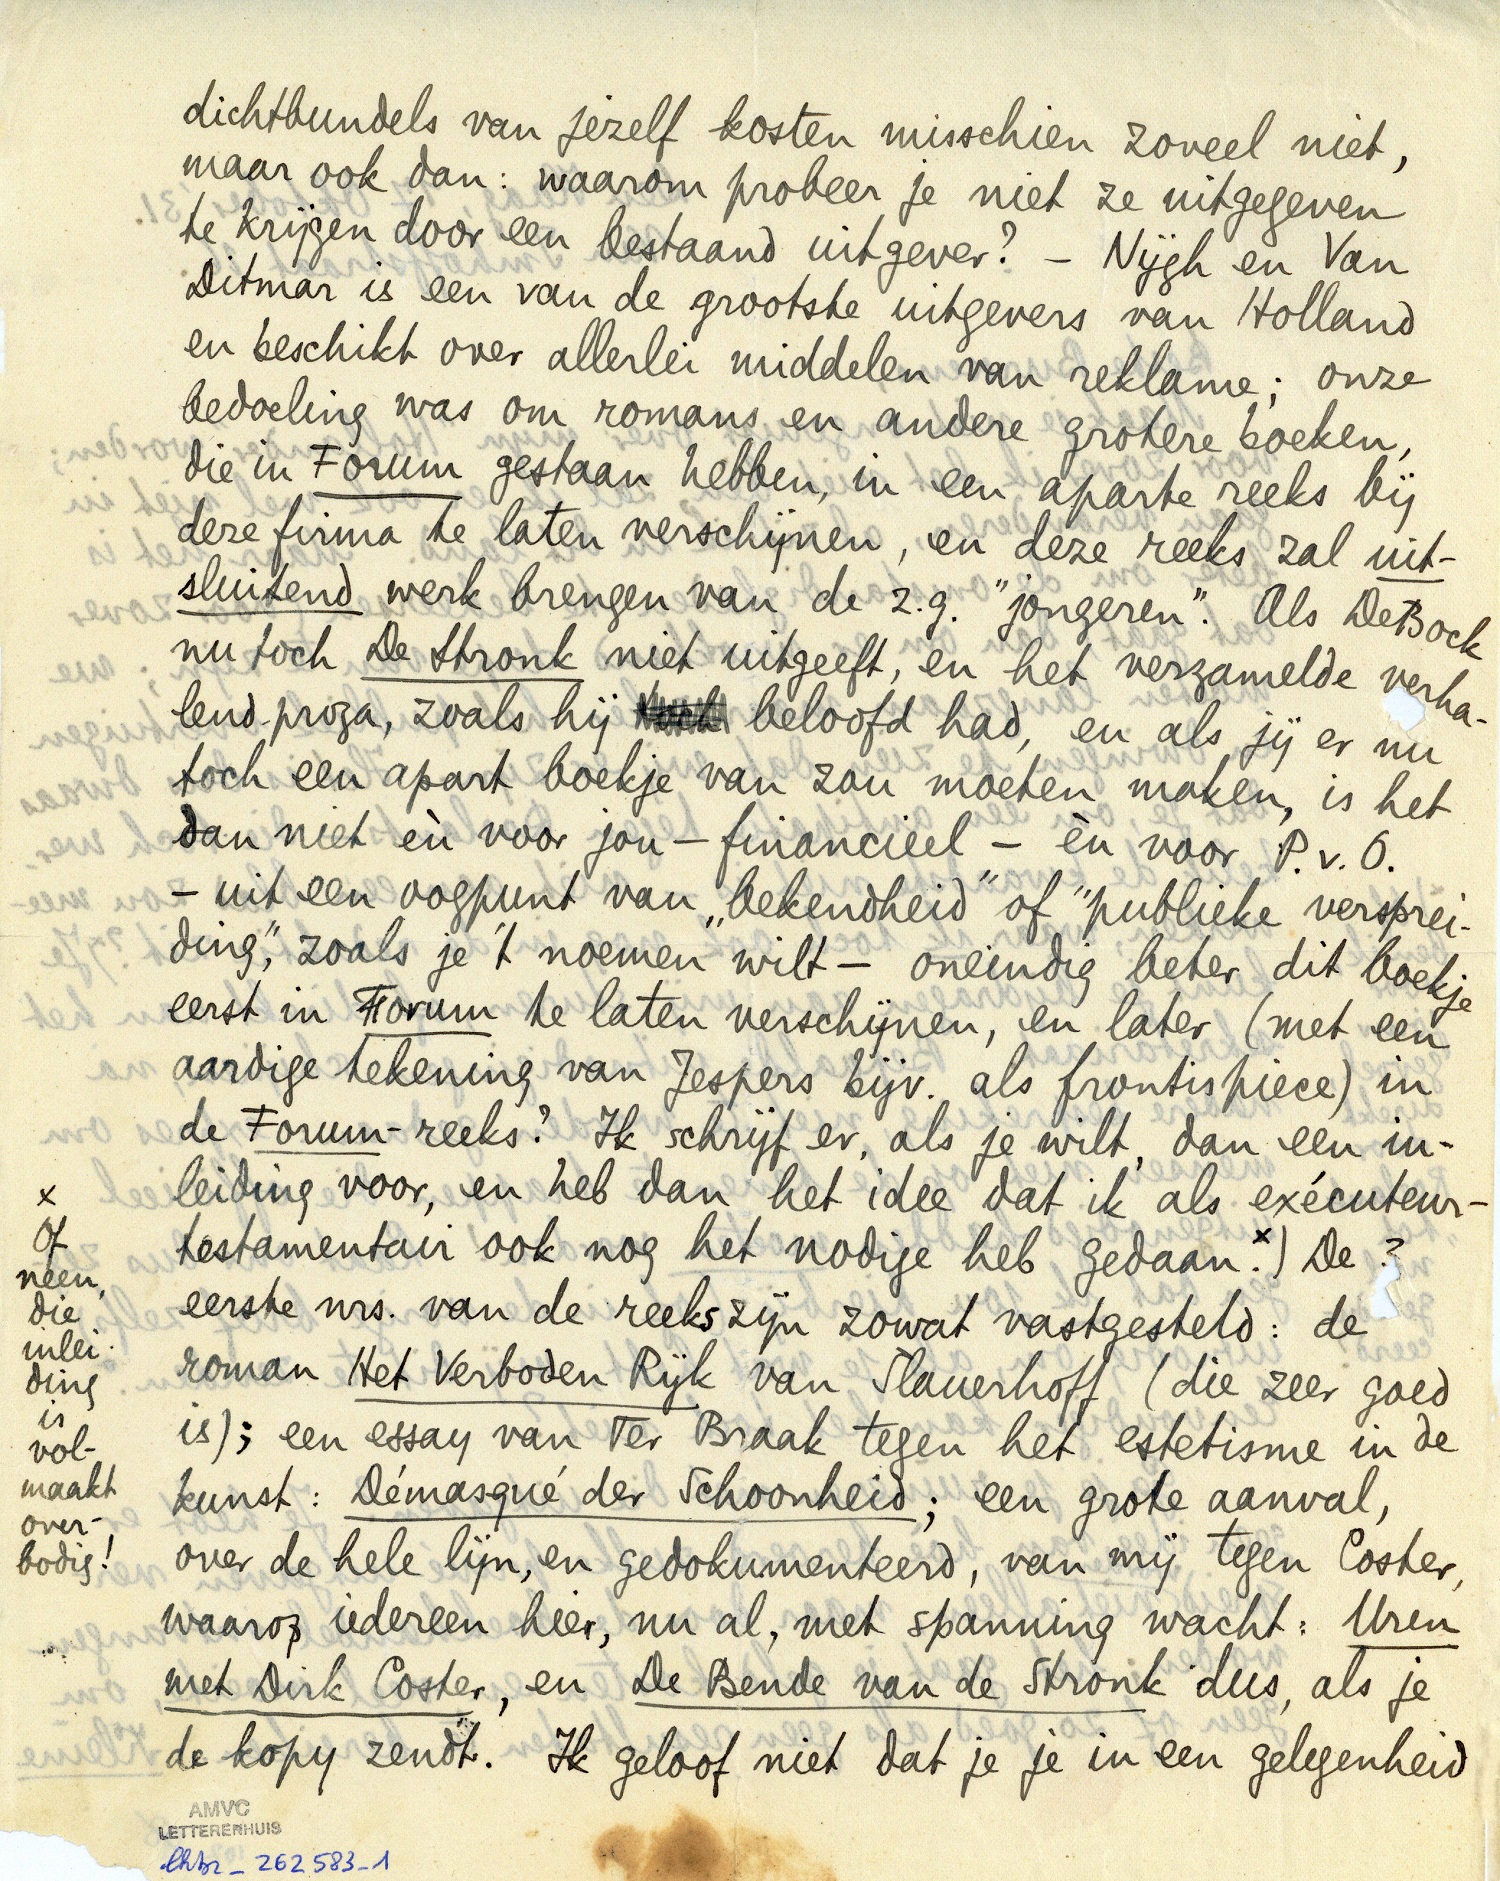 dichtbundels van jezelf kosten misschien zoveel niet,
maar ook dan: waarom probeer je niet ze uitgegeven
te krijgen door een bestaand uitgever? – Nijgh en Van
Ditmar is een van de grootste uitgevers van Holland
en beschikt over allerlei middelen van reklame; onze
bedoeling was om romans en andere grotere boeken,
die in Forum gestaan hebben, in een aparte reeks bij
deze firma te laten verschijnen, en deze reeks zal uit-
sluitend werk brengen van de z.g. "jongeren". Als De Bock
nu toch De Stronk niet uitgeeft, en het verzamelde verha-
lend proza, zoals hij beloofd had, en als jij er nu
toch een apart boekje van zou moeten maken, is het
dan niet èn voor jou – financieel – èn voor P.v.O.
– uit een oogpunt van „bekendheid" of "publieke versprei-
ding", zoals je 't noemen wilt – oneindig beter dit boekje
eerst in Forum te laten verschijnen, en later (met een
aardige tekening van Jespers bijv. als frontispiece) in
de Forum-reeks? Ik schrijf er, als je wilt, dan een in-
leiding voor, en heb dan het idee dat ik als exécuteur-
testamentair ook nog het nodige heb gedaan.x) De ?
eerste nrs. van de reeks zijn zowat vastgesteld: de
roman Het Verboden Rijk van Slauerhoff (die zeer goed
is); een essay van Ter Braak tegen het estetisme in de
kunst: Démasqué der Schoonheid; een grote aanval,
over de hele lijn, en gedokumenteerd, van mij tegen Coster,
waarop iedereen hier, nu al, met spanning wacht: Uren
met Dirk Coster, en De Bende van de Stronk dus, als je
de kopy zendt. Ik geloof niet dat je je in een gelegenheid
x
Of
neen,
die
inlei-
ding
is
vol-
maakt
over-
bodig!
AMVC
LETTERENHUIS
lhbr_262583_1